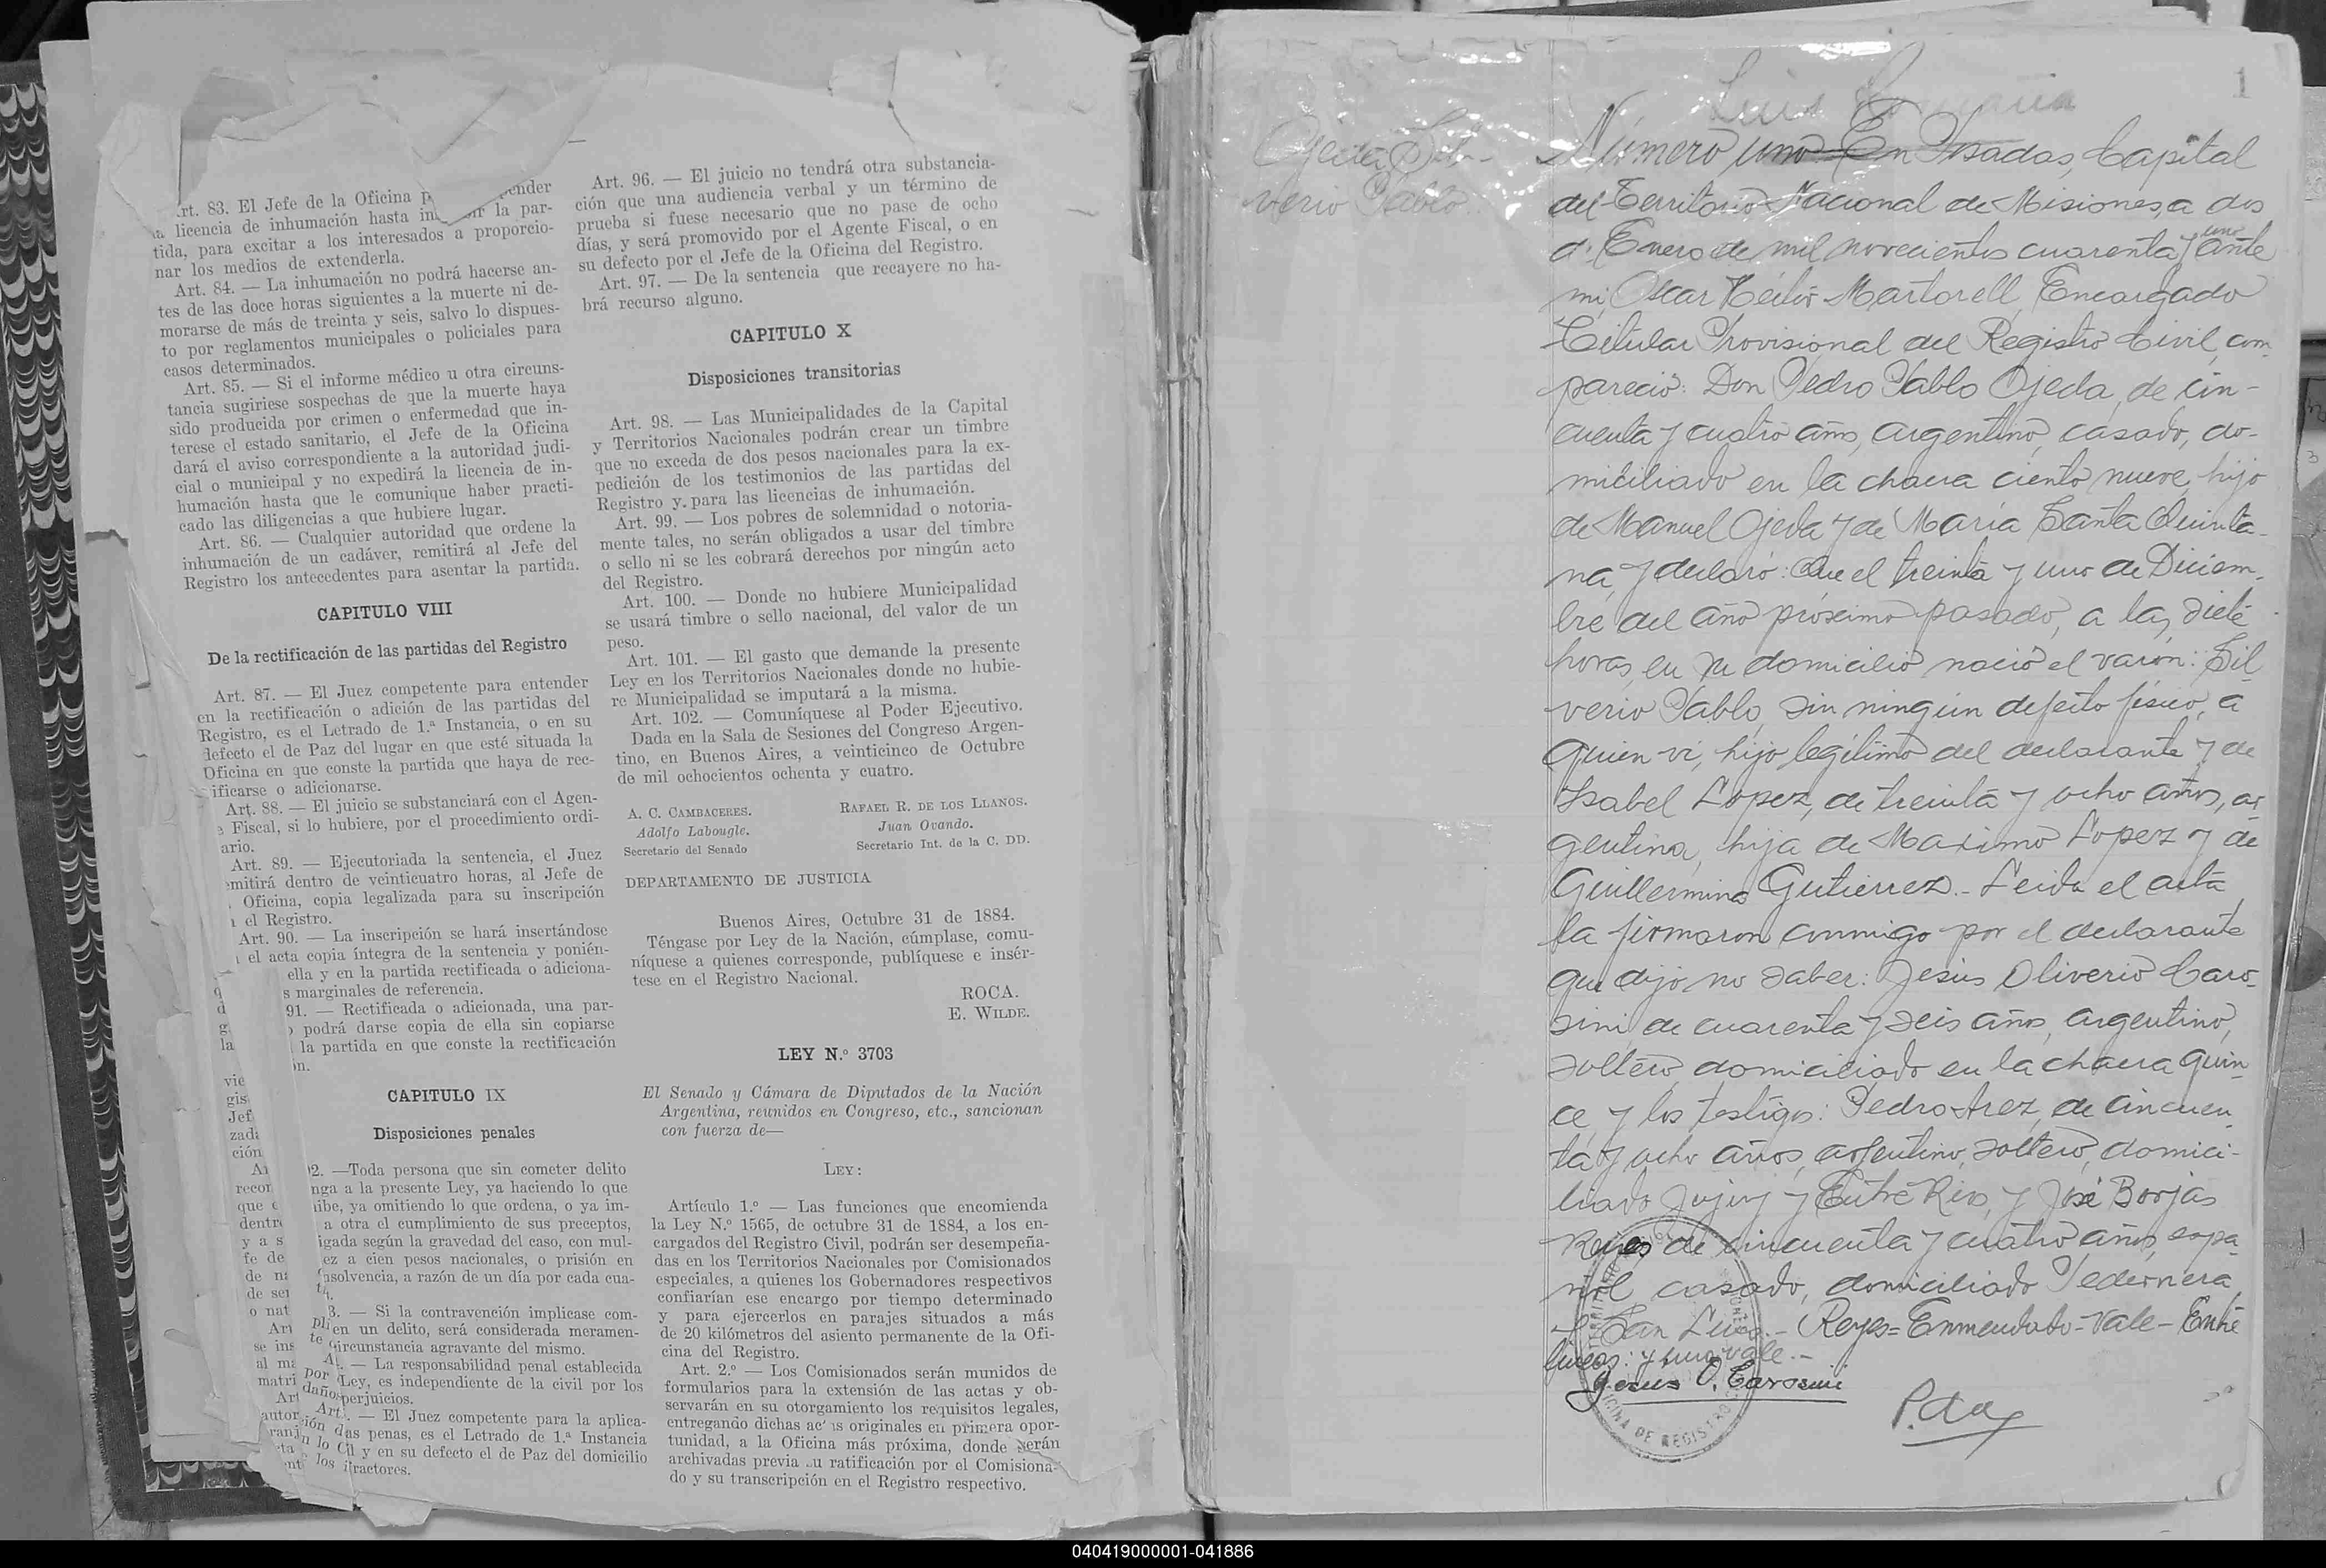 Art. 83. El Jefe de la Oficina
licencia de inhumación hasta la par-
tida, para excitar a los interesados a proporcio-
nar los medios de extenderla.
Art. 84. — La inhumación no podrá hacerse an-
tes de las doce horas siguientes a la muerte ni de-
morarse de más de treinta y seis, salvo lo dispues-
to por reglamentos municipales o policiales para
casos determinados.
Art. 85. — Si el informe médico u otra circuns-
tancia sugiriese sospechas de que la muerte haya
sido producida por crimen o enfermedad que in-
terese el estado sanitario, el Jefe de la Oficina
dará el aviso correspondiente a la autoridad judi-
cial o municipal y no expedirá la licencia de in-
humación hasta que le comunique haber practi-
cado las diligencias a que hubiere lugar.
Art. 86. — Cualquier autoridad que ordene la
inhumación de un cadáver, remitirá al Jefe del
Registro los antecedentes para asentar la partida.
CAPITULO VIII
De la rectificación de las partidas del Registro
Art. 87. — El Juez competente para entender
en la rectificación o adición de las partidas del
Registro, es el Letrado de 1.ª Instancia, o en su
defecto el de Paz del lugar en que esté situada la
Oficina en que conste la partida que haya de rec-
ificarse o adicionarse.
Art. 88. — El juicio se substanciará con el Agen-
e Fiscal, si lo hubiere, por el procedimiento ordi-
ario.
Art. 89. — Ejecutoriada la sentencia, el Juez
emitirá dentro de veinticuatro horas, al Jefe de
Oficina, copia legalizada para su inscripción
el Registro.
Art. 90. — La inscripción se hará insertándose
el acta copia íntegra de la sentencia y ponién-
ella y en la partida rectificada o adiciona-
s marginales de referencia.
91. — Rectificada o adicionada, una par-
podrá darse copia de ella sin copiarse
la partida en que conste la rectificación
ón.
CAPITULO IX
Disposiciones penales
92. —Toda persona que sin cometer delito
nga a la presente Ley, ya haciendo lo que
ibe, ya omitiendo lo que ordena, o ya im-
a otra el cumplimiento de sus preceptos,
igada según la gravedad del caso, con mul-
ez a cien pesos nacionales, o prisión en
insolvencia, a razón de un día por cada cua-
3. — Si la contravención implicase com-
en un delito, será considerada meramen-
te circunstancia agravante del mismo.
— La responsabilidad penal establecida
por Ley, es independiente de la civil por los
daños perjuicios.
Art. — El Juez competente para la aplica-
ción das penas, es el Letrado de 1.ª Instancia
y en su defecto el de Paz del domicilio
los fractores.
Art. 96. — El juicio no tendrá otra substancia-
ción que una audiencia verbal y un término de
prueba si fuese necesario que no pase de ocho
días, y será promovido por el Agente Fiscal, o en
su defecto por el Jefe de la Oficina del Registro.
Art. 97. — De la sentencia que recayere no ha-
brá recurso alguno.
CAPITULO X
Disposiciones transitorias
Art. 98. — Las Municipalidades de la Capital
y Territorios Nacionales podrán crear un timbre
que no exceda de dos pesos nacionales para la ex-
pedición de los testimonios de las partidas del
Registro y para las licencias de inhumación.
Art. 99. — Los pobres de solemnidad o notoria-
mente tales, no serán obligados a usar del timbre
o sello ni se les cobrará derechos por ningún acto
del Registro.
Art. 100. — Donde no hubiere Municipalidad
se usará timbre o sello nacional, del valor de un
peso.
Art. 101. — El gasto que demande la presente
Ley en los Territorios Nacionales donde no hubie-
re Municipalidad se imputará a la misma.
Art. 102. — Comuníquese al Poder Ejecutivo.
Dada en la Sala de Sesiones del Congreso Argen-
tino, en Buenos Aires, a veinticinco de Octubre
de mil ochocientos ochenta y cuatro.
A. C. CAMBACERES. RAFAEL R. DE LOS LLANOS.
Adolfo Labougle. Juan Ovando.
Secretario del Senado Secretario Int. de la C. DD.
DEPARTAMENTO DE JUSTICIA
Buenos Aires, Octubre 31 de 1884.
Téngase por Ley de la Nación, cúmplase, comu-
níquese a quienes corresponde, publíquese e insér-
tese en el Registro Nacional.
ROCA.
E. WILDE.
LEY N.º 3703
El Senado y Cámara de Diputados de la Nación
Argentina, reunidos en Congreso, etc., sancionan
con fuerza de—
LEY:
Artículo 1.º — Las funciones que encomienda
la Ley N.º 1565, de octubre 31 de 1884, a los en-
cargados del Registro Civil, podrán ser desempeña-
das en los Territorios Nacionales por Comisionados
especiales, a quienes los Gobernadores respectivos
confiarían ese encargo por tiempo determinado
y para ejercerlos en parajes situados a más
de 20 kilómetros del asiento permanente de la Ofi-
cina del Registro.
Art. 2.º — Los Comisionados serán munidos de
formularios para la extensión de las actas y ob-
servarán en su otorgamiento los requisitos legales,
entregando dichas ac as originales en primera opor-
tunidad, a la Oficina más próxima, donde serán
archivadas previa su ratificación por el Comisiona-
do y su transcripción en el Registro respectivo.
1
Luis
Ojeda Sil-
verio Pablo
Número uno En Posadas, Capital
del Territorio Nacional de Misiones, a dos
de Enero de mil novecientos cuarenta y uno ante
mi, Oscar Héctor Martorell, Encargado
Titular Provisional del Registro Civil, com-
pareció: Don Pedro Pablo Ojeda, de cin-
cuenta y cuatro años, argentino, casado, do-
miciliado en la chacra ciento nueve, hijo
de Manuel Ojeda y de María Santa Quinta-
na, y declaró: Que el treinta y uno de Diciem-
bre del año próximo pasado, a las siete
horas, en su domicilio nació el varón: Sil
verio Pablo, sin ningún defecto físico, a
quien vi, hijo legítimo del declarante y de
Isabel Lopez, de treinta y ocho años, ar
gentina, hija de Maximo Lopez y de
Guillermina Gutierrez.- Leida el acta
la firmaron conmigo por el declarante
que dijo no saber: Jesús Oliverio Caro-
sini, de cuarenta y seis años, argentino,
soltero domiciliado en la chacra quin-
ce y los testigos: Pedro Arez, de cincuen-
ta y ocho años, argentino, soltero, domici-
liado Jujuy y Entre Rios, y José Borjas
Reyes de cincuenta y cuatro años, espa-
ñol casado, domiciliado Pedernera
y San Luis.- Reyes=Enmendado-Vale-Entre
lineas: y uno vale.-
Jesus O. Carosini
OFICINA DE REGISTRO
040419000001-041886